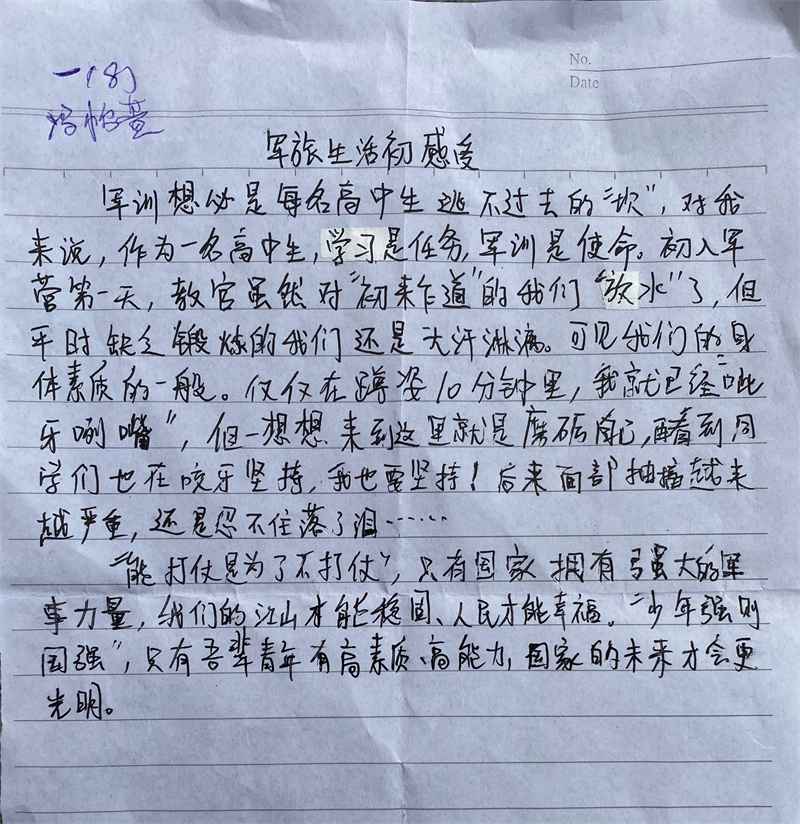 No.
Date
一(8)
冯怡萱
军旅生活初感受
军训想必是每名高中生逃不过去的“坎”,对我
来说,作为一名高中生,学习是任务,军训是使命。初入军
营第一天,教官虽然对“初来乍道”的我们“放水”了,但
平时缺乏锻炼的我们还是大汗淋漓。可见我们的身
体素质的一般。仅仅在蹲姿10分钟里,我就已经“呲
牙咧嘴”,但一想想来到这里就是磨砺自己,看到同
学们也在咬牙坚持,我也要坚持!后来面部抽搐越来
越严重,还是忍不住落了泪……
“能打仗是为了不打仗”,只有国家拥有强大的军
事力量,我们的江山才能稳固、人民才能幸福。“少年强则
国强”,只有吾辈青年有高素质、高能力,国家的未来才会更
光明。